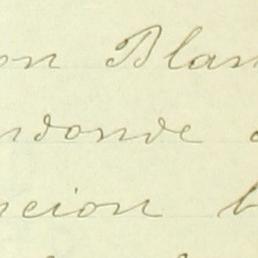 on Blan
ndonde
ncion b